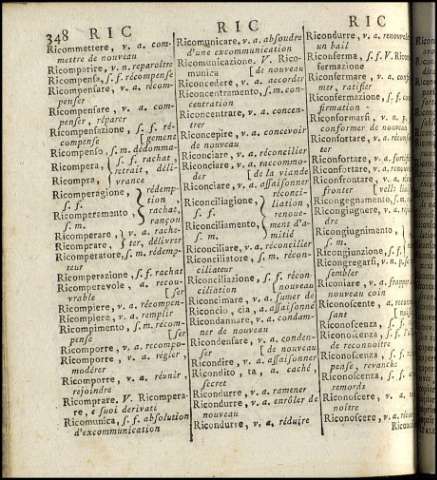 348 RIC
Ricommettere, v. a. com-
mettre de nouveau
Ricomparire, v. n. reparoître
Ricompensa, s. f. récompense
Ricompensare, v. a. récom-
penser
Ricompensare, v. a. com-
penser, réparer
Ricompensazione, s. f. ré-
compense [gement
Ricompenso, s. m. dédomma-
Ricompera, } s. f. rachat,
retrait, déli-
Ricompra, } vrance
Ricomperagione, } rédemp-
s. f. tion,
Ricomperamento, } rachat,
s. m. rançon
Ricomperare, } v. a. rache-
Ricomprare, } ter, délivrer
Ricomperatore, s. m. rédemp-
teur
Ricomperazione, s. f. rachat
Ricomperevole, a. recou-
vrable [ser
Ricompiere, v. a. récompen-
Ricompiere, v. a. remplir
Ricompimento, s. m. récom-
pense [ser
Ricomporre, v. a. recompo-
Ricomporre, v. a. régler,
modérer
Ricomporre, v. a. réunir,
rejoindre
Ricomprare, V. Ricompera-
re, e suoi derivati
Ricomunica, s. f. absolution
d'excommunication
RIC
Ricomunicare, v. a. absoudre
d'une excommunication
Ricomunicazione, V. Rico-
munica [de nouveau
Riconcedere, v. a. accorder
Riconcentramento, s. m. con-
centration
Riconcentrare, v. a. concen-
trer
Riconcepire, v. a. concevoir
de nouveau
Riconciare, v. a. réconcilier
Riconciare, v. a. raccommo-
der [de la viande
Riconciare, v. a. assaisonner
Riconciliagione, } réconci-
s. f. liation,
renoue-
Riconciliamento, } ment d'a-
s. m. mitié
Riconciliare, v. a. réconcilier
Riconciliatore, s. m. récon-
ciliateur
Riconciliazione, s. f. récon-
ciliation [nouveau
Riconcimare, v. a. fumer de
Riconcio, cia, a. assaisonné
Ricondannare, v. a. condam-
ner de nouveau
Ricondensare, v. a. conden-
ser [de nouveau
Ricondire, v. a. assaisonner
Ricondito, ta, a. caché,
secret
Ricondurre, v. a. ramener
Ricondurre, v. a. enrôler de
nouveau
Ricondurre, v. a. réduire
RIC
Ricondurre, v. a.
un bail
Riconferma, s. f. V.
formazione
Riconfermare, v. a.
mer, ratifier
Riconfermazione, s. f.
firmation
Riconformarsi, v. n. p.
conformer de nouveau
Riconfortare, v. a.
ter
Riconfortare, v. a.
Riconfrontare, v. a.
fronter
Ricongegnamento, s. m.
Ricongiugnere, v. a.
dre
Ricongiugnimento,
s. m.
Ricongiunzione, s. f.
Ricongregarsi, v. n. p.
sembler
Riconiare, v. a. frapper
nouveau coin
Riconoscente, a.
sant
Riconoscenza, s. f.
Riconoscenza, s. f.
de reconnoître
Riconoscenza, s. f.
pense, revanche
Riconoscenza, s. f.
remords
Riconoscere, v. a.
noître
Riconoscere, v. a.